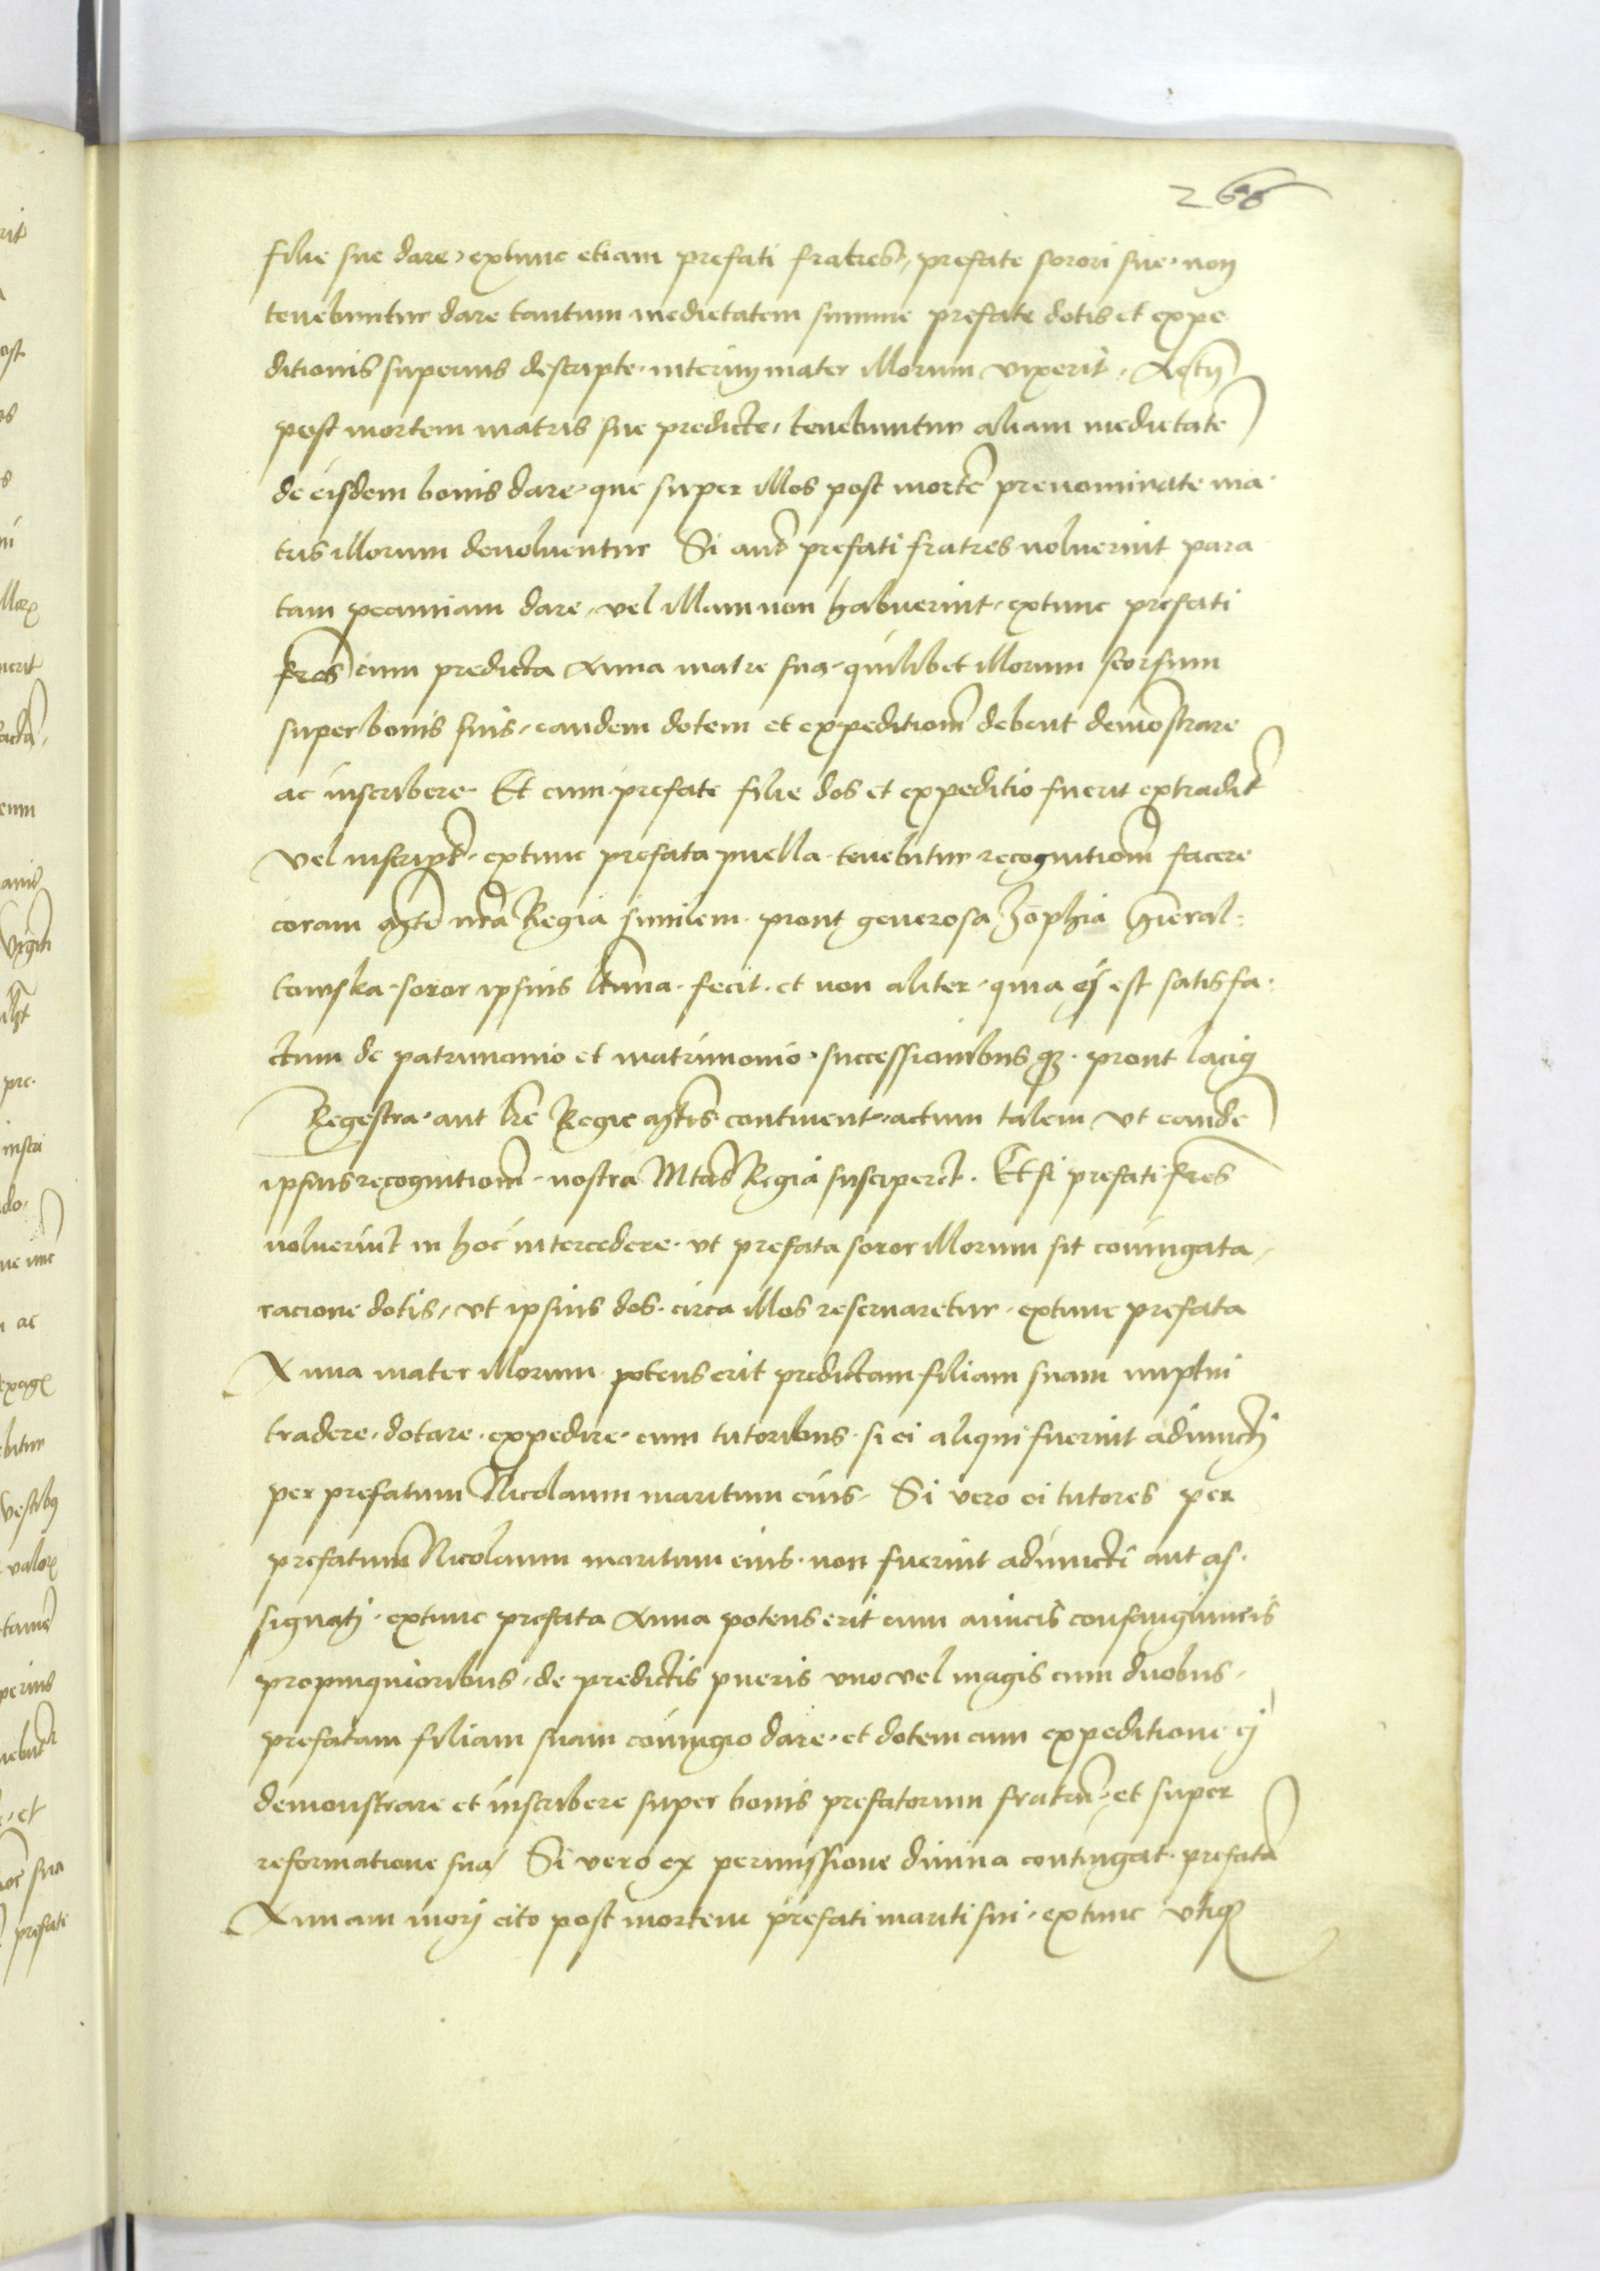 266
filie sue dare, extunc etiam prefati fratres, prefate sorori sue non
tenebuntur dare tantum medietatem summe prefate dotis et expe
ditionis superius descripte interim mater illorum vixerit,
post mortem matris sue predicte, tenebuntur aliam medietatē
de eisdem bonis dare, que super illos post mortē prenominate ma
tris illorum devoluentur Si autē prefati fratres noluerint para
tam pecuniam dare, vel illam non habuerint, extunc prefati
frēs cum predicta Anna matre sua, quilibet illorum seorsum
super bonis suis, eandem dotem et expeditionē debent demōstrare
ac inscribere. Et cum prefate filie dos et expeditio fuerit extradit
vel inscript, extunc prefata puella tenebitur recognitionē facere
coram Mte nrā Regia similem prout generosa Zophia Hieral-
towska soror ipsius fecit, et non aliter, quia ej est satisfa
ctum de patrimonio et matrimonio successionibusq₃ prout lacius
Regestra aut lrē Regie Mtis continent, actum talem vt eandē
ipsius recognitionē nostra Mtas Regia susciperet. Et si prefati frēs
noluerint in hoc intercedere vt prefata soror illorum sit coniugata,
racione dotis, vt ipsius dos circa illos reservaretur, extunc prefata
Anna mater illorum potens erit predictam filiam suam nuptui
tradere, dotare, expedire, cum tutoribus si ei aliqui fuerint adiuncti
per prefatum Nicolaum maritum eius, Si vero ei tutores per
prefatum Nicolaum maritum eius non fuerint adiuncti aut as
signatj, extunc prefata Anna potens erit cum amicis consanguineis
propinquioribus, de predictis pueris vno vel magis cum duobus,
prefatam filiam suam coniugio dare, et dotem cum expeditione ej
demonstrare et inscribere super bonis prefatorum fratrū, et super
reformatione sua Si vero ex permissione divina contingat prefatā
Annam morj cito post mortem prefati mariti sui, extunc vtiq₃